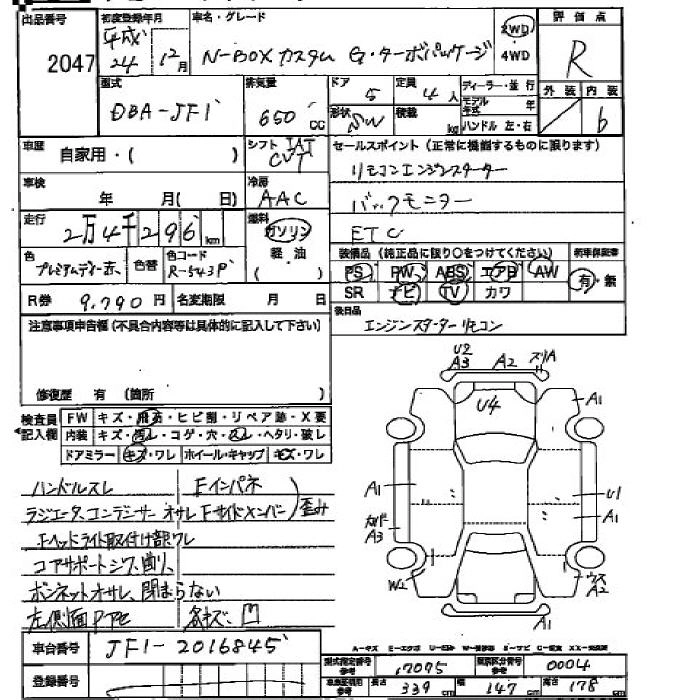 出品番号 初度登録年月 車名・グレード 評価点
2047 平成 24 12月 N-BOXカスタム G・ターボパッケージ 2WD 4WD R
型式 排気量 ドア 定員 ディーラー・並行 外装 内装
DBA-JF1 650cc 5 4人 モデル年式 年 6
形状 積載 kg ハンドル 左・右
車歴 自家用・( ) シフト IAT CVT セールスポイント(正常に機能するものに限ります)
リモコンエンジンスターター
車検 年 月( 日) 冷房 AAC バックモニター
走行 2万4千296km 燃料 ガソリン 軽油 ( ) ETC
装備品(純正品に限り〇をつけてください) 新車保証書
色 プレミアムディープ 色替 色コード R-543P PS PW ABS エアB AW 有・無
SR ナビ TV カワ
R券 9,790円 名変期限 月 日 後日品
注意事項申告欄(不具合内容等は具体的に記入して下さい) エンジンスターターリモコン
修復歴 有(箇所 )
検査員記入欄 FW キズ・飛石・ヒビ割・リペア跡・X要
内装 キズ・汚レ・コゲ・穴・スレ・ヘタリ・破レ
ドアミラー キズ・ワレ ホイール・キャップ キズ・ワレ
ハンドルスレ Fインパネ
ラジエータ、コンデンサー オサレ Fサイドメンバー 歪み
Fヘッドライト取付け部ワレ
コアサポートシワ、曲り、
ボンネットオサレ、閉まらない
左側面 各キズ、凹
U2 A3 A2 スリA
U4
A1
A1 U1
A1
A3
W2 ウス A2
A1
A-キズ E-エクボ U-凹み W-波うち S-サビ C-腐食 XX-交換済
車台番号 JF1-2016845
型式指定番号 参考 17095 類別区分番号 参考 0004
登録番号 長さ 339cm 幅 147cm 高さ 178cm